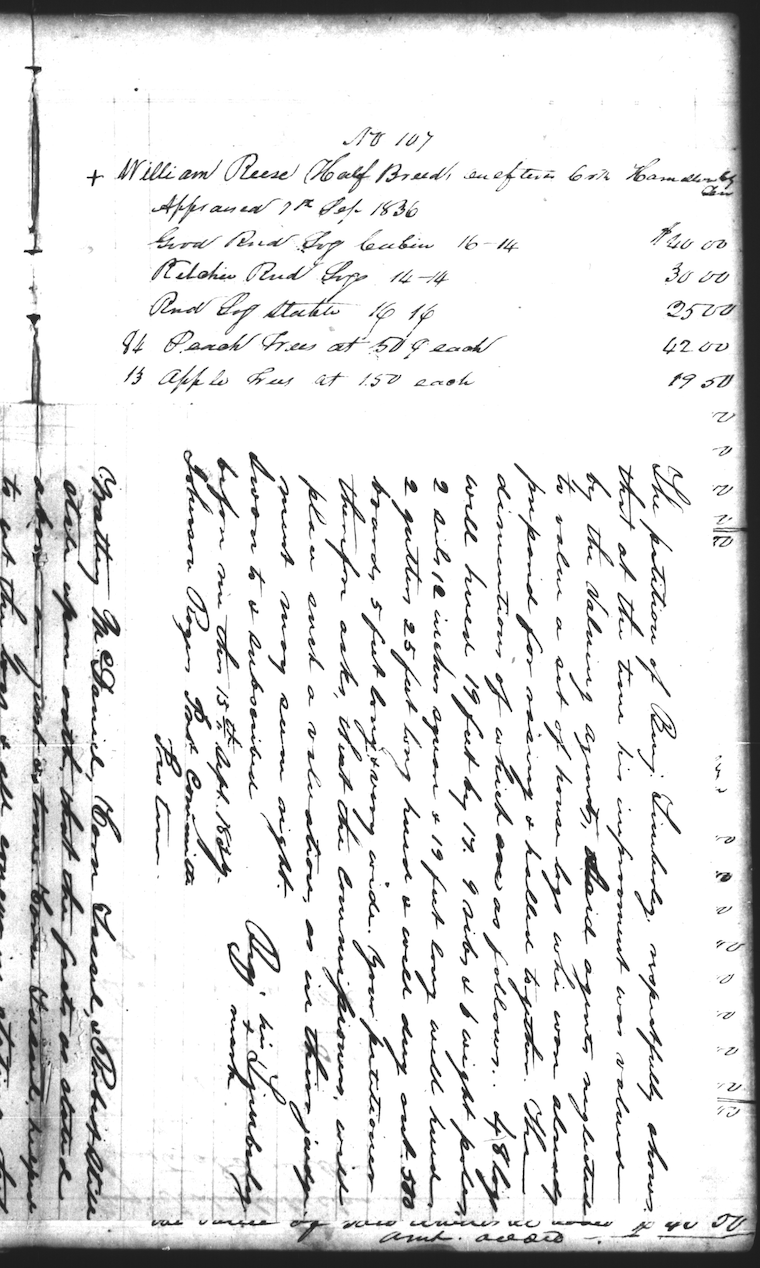 No 107
+ William Reese (Half Breed)
Appraised 7th Sep 1836
Good Rnd Log Cabin 16-14 $40 00
Kitchen Rnd Logs 14-14 30 00
Rnd Log Stable 16 16 25 00
84 Peach Trees at 50 ¢ each 42 00
13 Apple Trees at 1.50 each 19 50
The petition of Benj. Timberly respectfully shows
that at the time his improvement was valued
by the valuing agents, said agents neglected
to value a set of house logs which were already
prepared for raising & halled together. The
dimentions of which are as follows. 48 logs
well hewed 19 feet by 17. 9 ribs & 6 weight poles,
2 sils 12 inches square & 19 feet long well hewed
2 gutters 25 feet long hewed & well dug out. 500
boards 5 feet long & very wide. Your petitioner
therefore asks, that the commissioners, will
place such a valuation, as in their judge
ment may seem right.
Sworn to & subscribed
before me this 15th Sept. 1837.
Johnson Rogers
Benj. his + Timberly
mark
state upon oath, that the facts as stated
to cut the logs &
the value of
amt. added $ 40 50